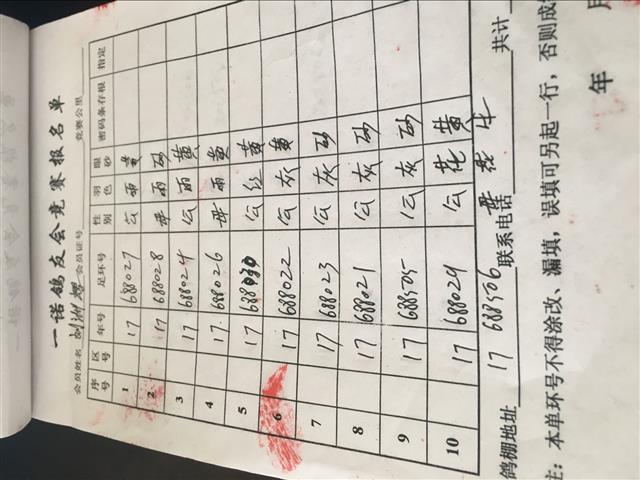 一诺鸽友会竞赛报名单
会员姓名 会员证号 竞赛公里
序号 区号 年号 足环号 性别 羽色 眼砂 密码条存根 指定
1 17 688027 公 雨 黄
2 17 688028 母 雨 砂
3 17 688024 公 雨 黄
4 17 688026 母 雨 黄
5 17 公 红 黄
6 17 688022 公 灰 黄
7 17 688023 公 灰 砂
8 17 688021 公 灰 砂
9 17 688505 公 灰 砂
10 17 688029 公 花 黄
17 688506 母 花 牛
鸽棚地址 联系电话 共计
注：本单环号不得涂改、漏填，误填可另起一行，否则成
年 月